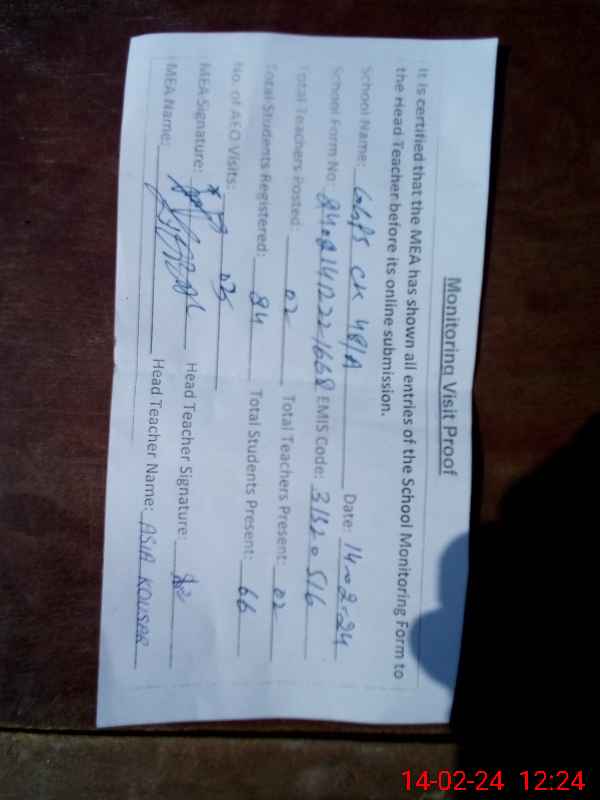 Monitoring Visit Proof
It is certified that the MEA has shown all entries of the School Monitoring Form to
the Head Teacher before its online submission.
School Name: GGPS CK 48/A Date: 14-02-24
School Form No: EMIS Code: 31320516
Total Teachers Posted: 02 Total Teachers Present: 02
Total Students Registered: 84 Total Students Present: 66
No. of AEO Visits: 05
MEA Signature: Head Teacher Signature:
MEA Name: Head Teacher Name: ASIA KOUSAR
14-02-24 12:24